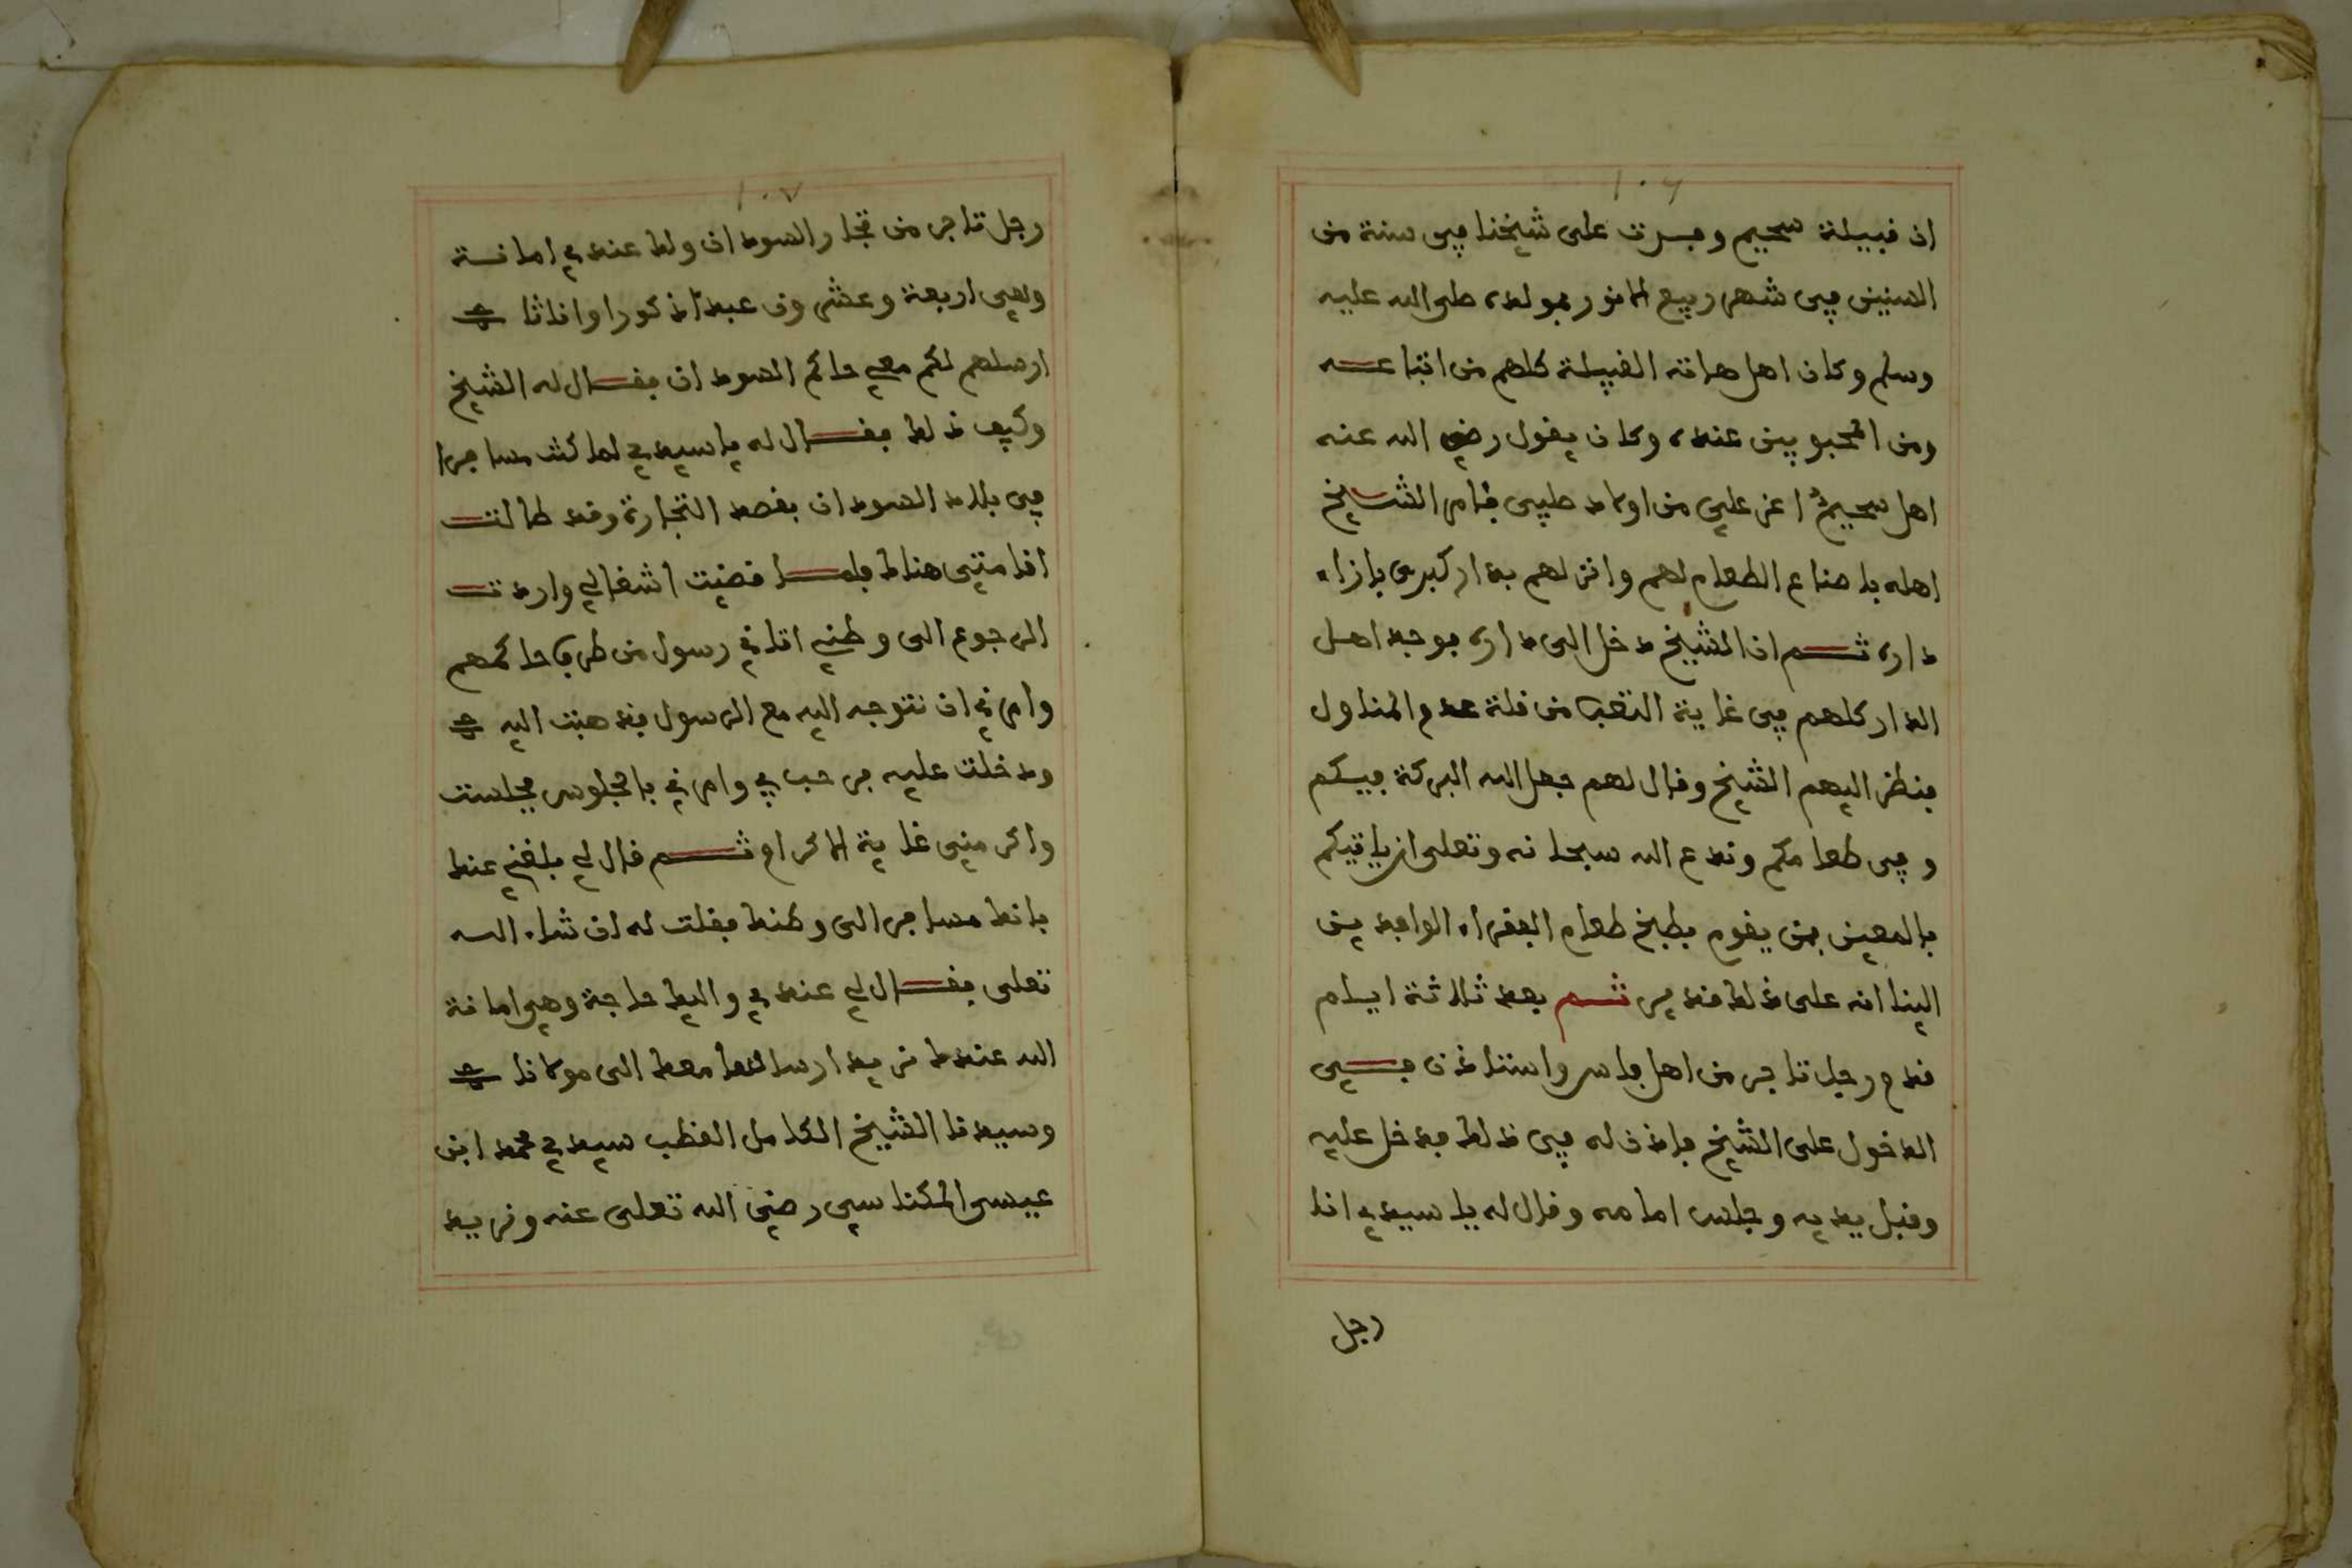 ١٠٦
ان قبيلة سحيم وفدت على شيخنا في سنة من
السنين في شهر ربيع الانور بمولده صلى الله عليه
وسلم وكان اهل هاته القبيلة كلهم من اتباعه
ومن المحبوبين عنده وكان يقول رضي الله عنه
اهل سحيم اعز علي من اولاد صلبي فامر الشيخ
اهله باصناع الطعام لهم وانزلهم بدار كبرى بازاء
داره ثم ان الشيخ دخل الى داره فوجد اهل
الدار كلهم في غاية التعب من قلة عدم المناول
فنظر اليهم الشيخ وقال لهم جعل الله البركة فيكم
وفي طعامكم وندع الله سبحانه وتعلى ان ياتيكم
بالمعين بمن يقوم بطبخ طعام الفقراء الوافدين
الينا انه على ذلك قدير ثم بعد ثلاثة ايام
قدم رجل تاجر من اهل فاس واستاذن في
الدخول على الشيخ فاذن له في ذلك فدخل عليه
وقبل يديه وجلس امامه وقال له يا سيدي انا
رجل
١٠٧
رجل تاجر من تجار السودان ولك عندي امانة
وهي اربعة وعشرون عبدا ذكورا واناثا
ارسلهم لكم معي حاكم السودان فقال له الشيخ
وكيف ذلك فقال له يا سيدي لما كنت مسافرا
في بلاد السودان بقصد التجارة وقد طالت
اقامتي هناك فلما قضيت اشغالي واردت
الرجوع الى وطني اتاني رسول من طرف حاكمهم
وامرني ان نتوجه اليه مع الرسول فذهبت اليه
ودخلت عليه فرحب بي وامرني بالجلوس فجلست
واكرمني غاية الاكرام ثم قال لي بلغني عنك
بانك مسافر الى وطنك فقلت له ان شاء الله
تعلى فقال لي عندي واليك حاجة وهي امانة
الله عندك نريد ارسالها معك الى مولانا
وسيدنا الشيخ الكامل القطب سيدي محمد ابن
عيسى المكناسي رضي الله تعلى عنه ونريد